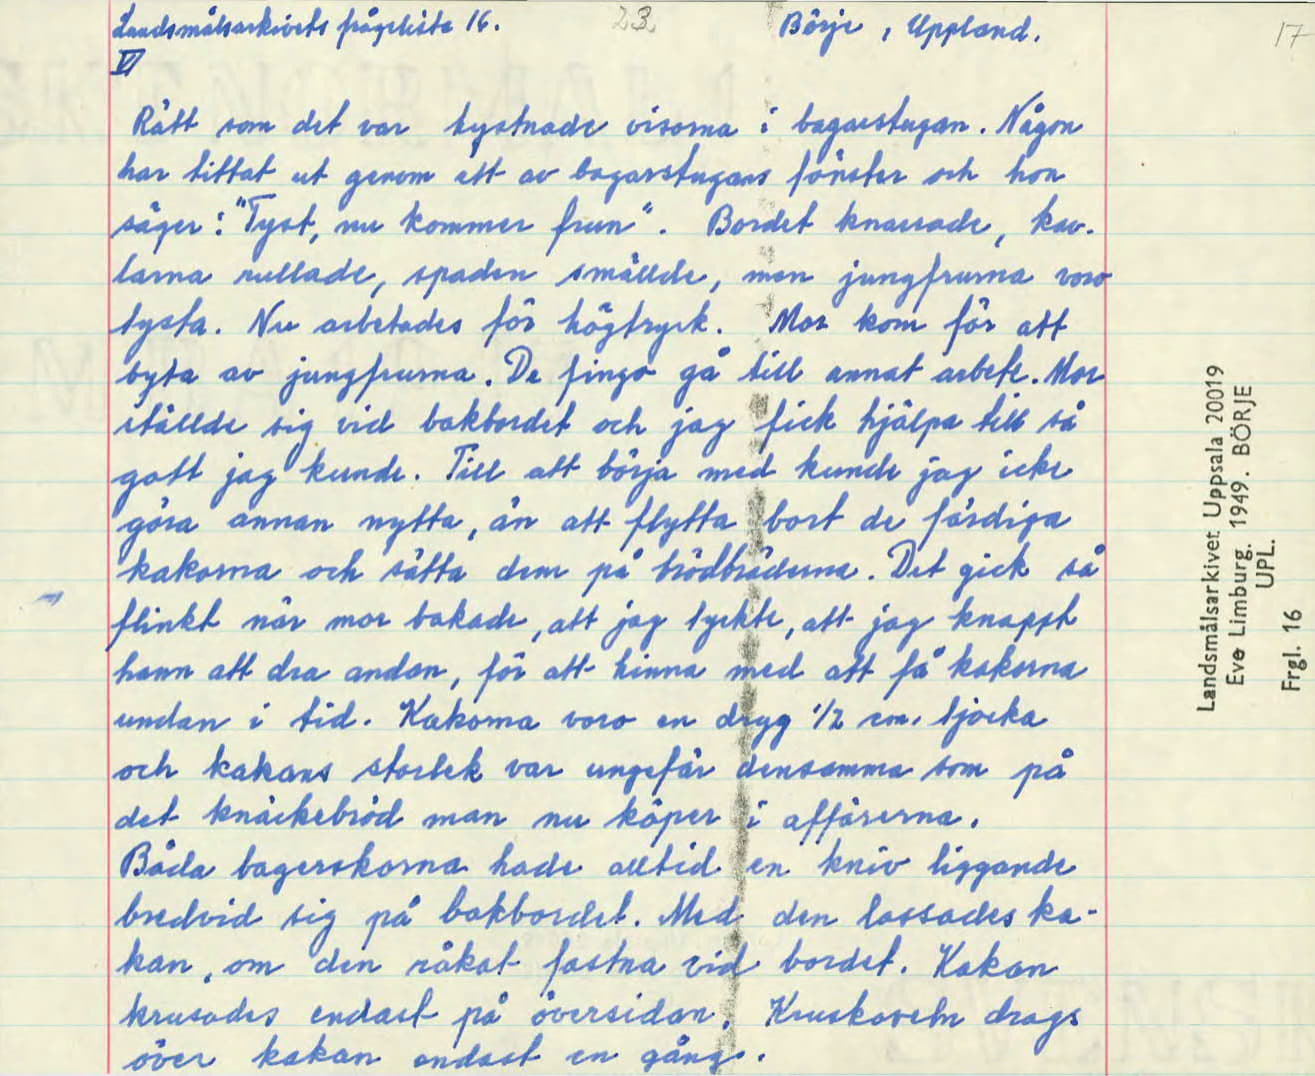 Landsmålsarkivets frågelista 16. 23. Börje, Uppland. 17
VI
Rätt som det var tystnade visorna i bagarstugan. Någon
har tittat ut genom ett av bagarstugans fönster och hon
säger: "Tyst, nu kommer frun". Bordet knarrade, kav-
larna rullade, spaden smällde, men jungfrurna voro
tysta. Nu arbetades för högtryck. Mor kom för att
byta av jungfrurna. De fingo gå till annat arbete. Mor
ställde sig vid bakbordet och jag fick hjälpa till så
gott jag kunde. Till att börja med kunde jag icke
göra annan nytta, än att flytta bort de färdiga
kakorna och sätta dem på brödbräderna. Det gick så
flinkt när mor bakade, att jag tyckte, att jag knappt
hann att dra andan, för att hinna med att få kakorna
undan i tid. Kakorna voro en dryg 1/2 cm. tjocka
och kakans storlek var ungefär densamma som på
det knäckebröd man nu köper i affärerna.
Båda bagerskorna hade alltid en kniv liggande
bredvid sig på bakbordet. Med den lossades ka-
kan, om den råkat fastna vid bordet. Kakan
krusades endast på översidan. Kruskaveln drogs
över kakan endast en gång.
Landsmålsarkivet Uppsala 20019
Eve Limburg. 1949. BÖRJE
UPL.
Frgl. 16